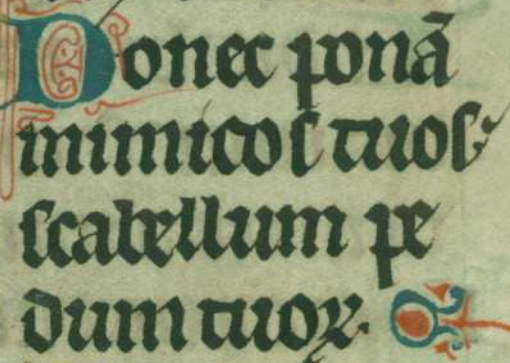 Donec ponā
inimicos tuos:
scabellum pe
dum tuoꝝ.